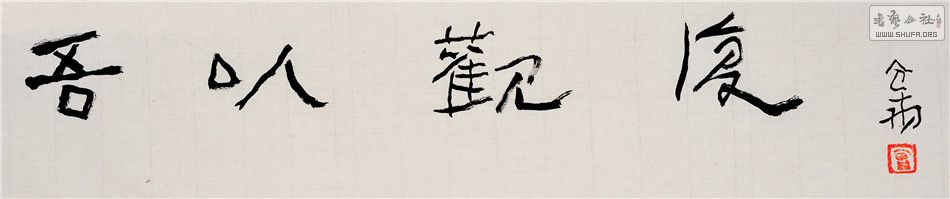 吾以觀復
書藝公社
WWW.SHUFA.ORG